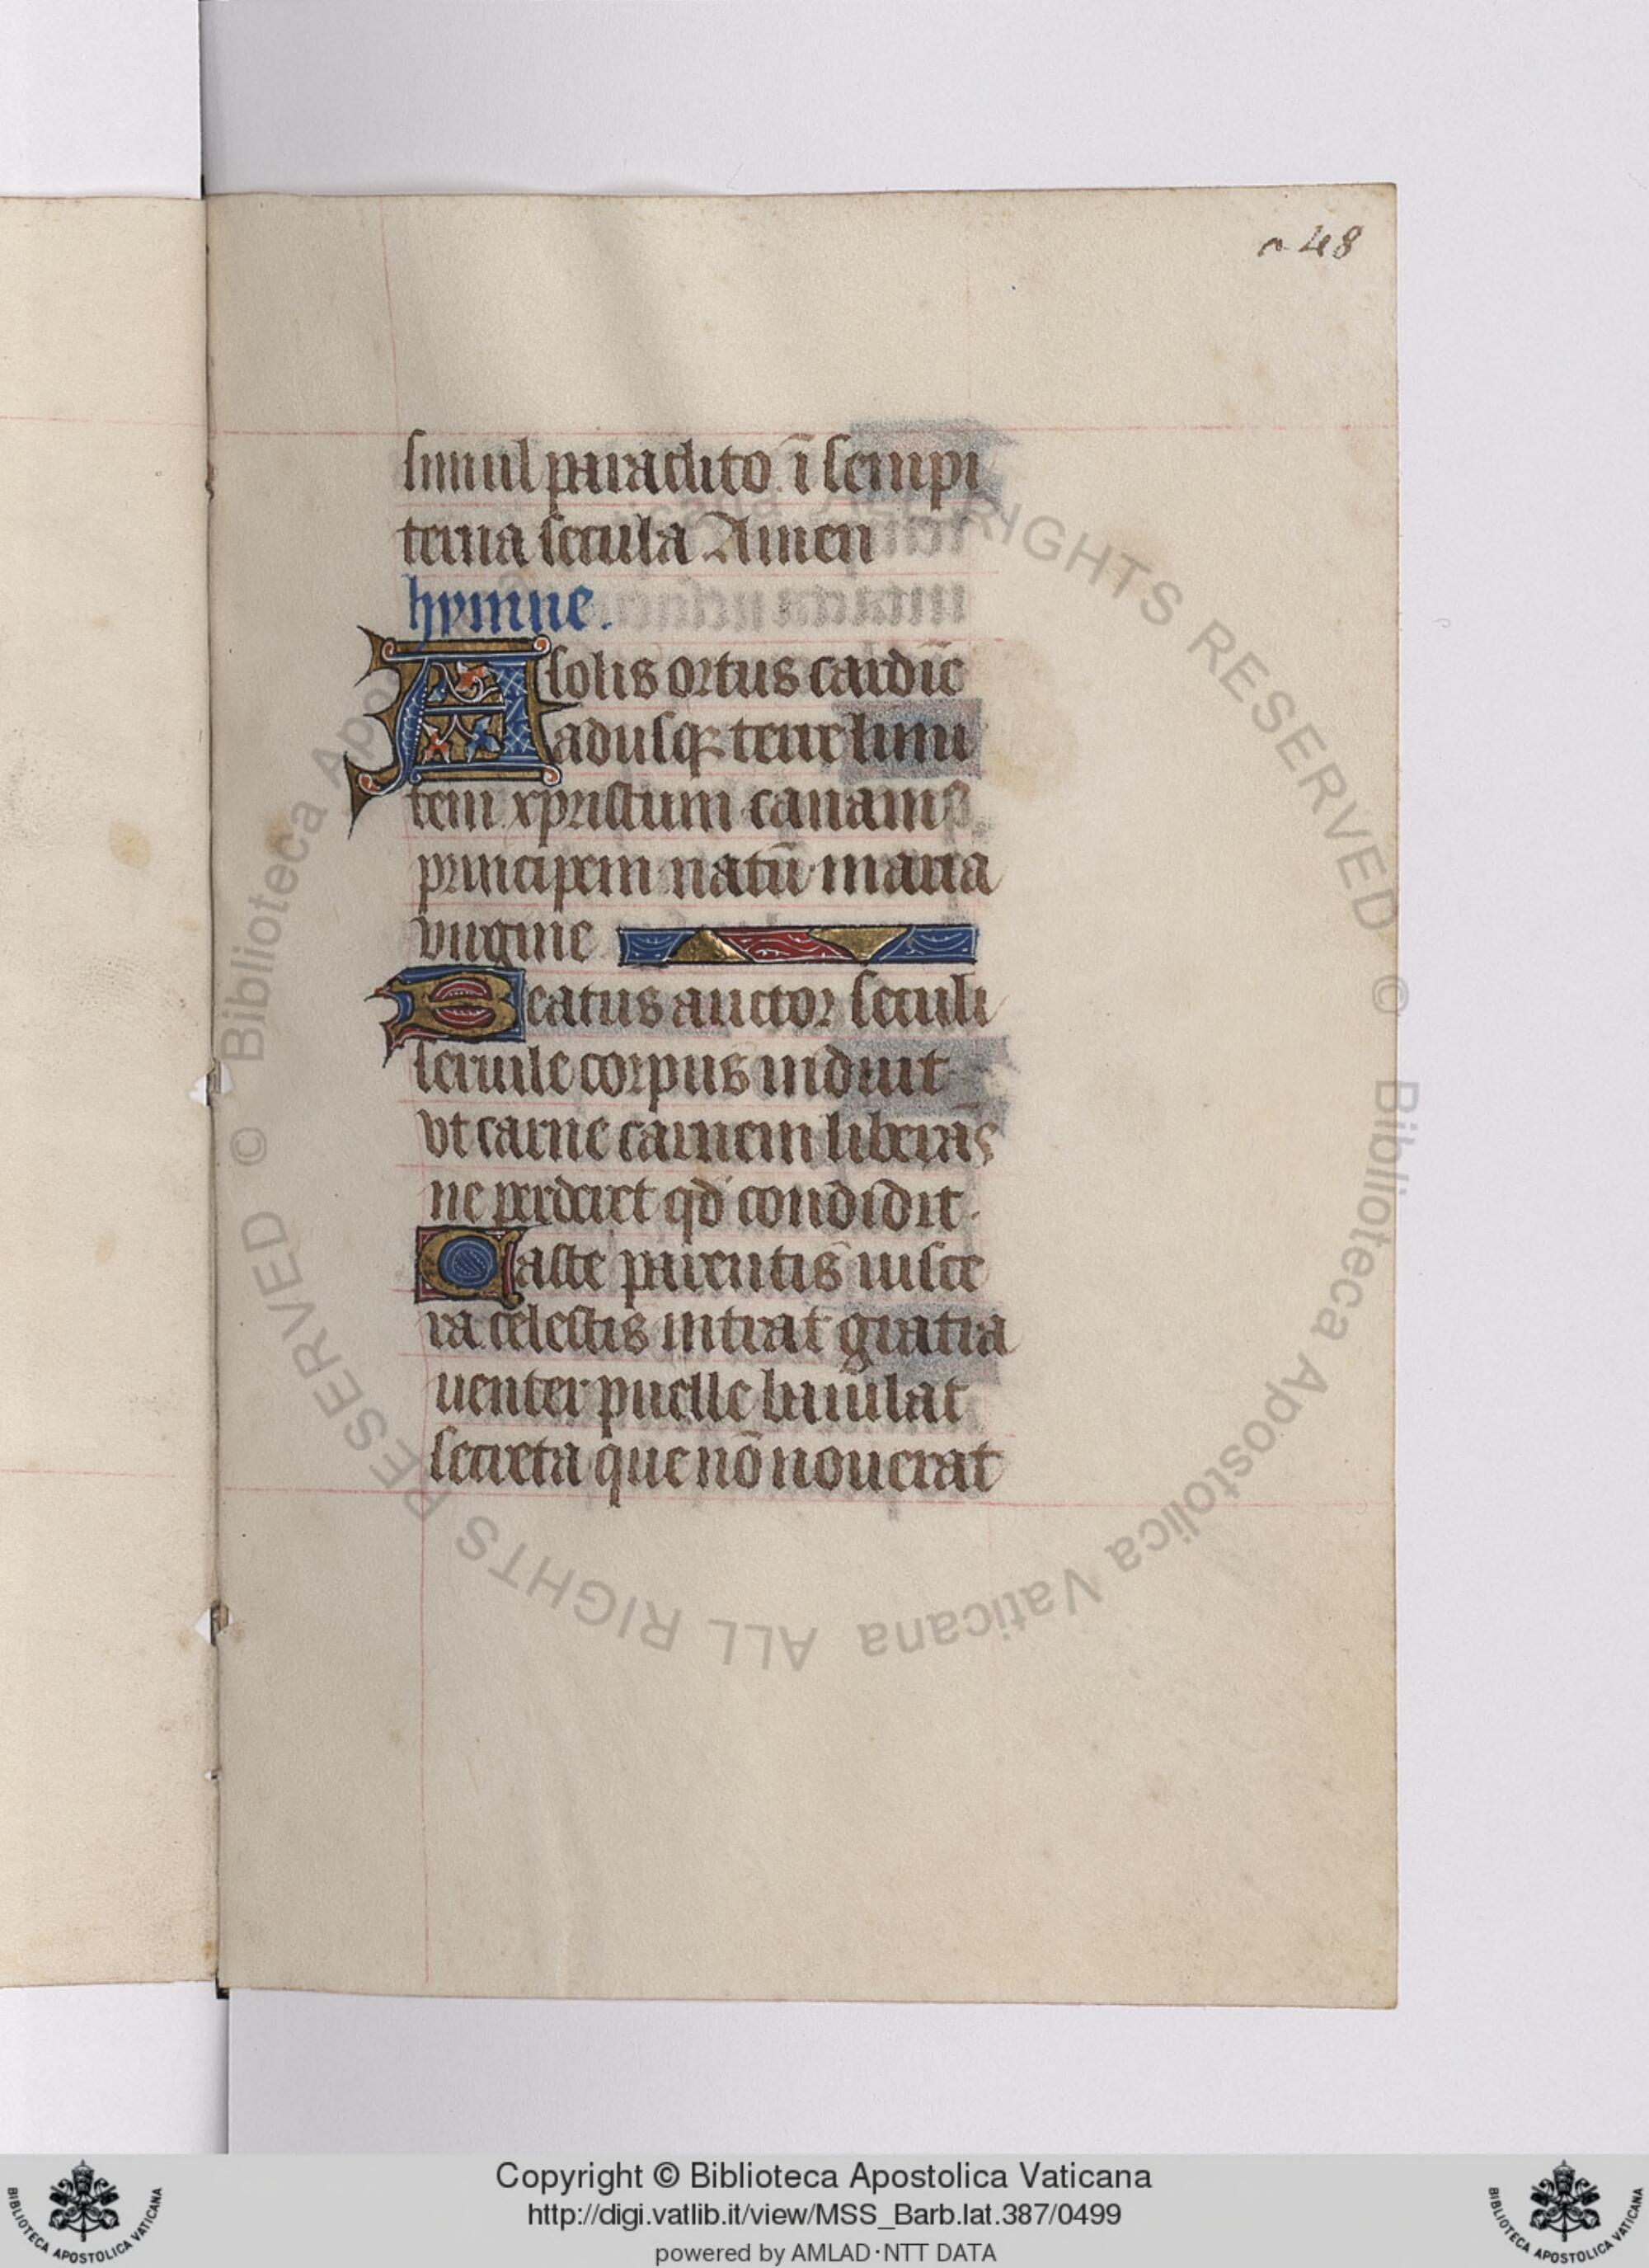 n 48
simul paraclito ī sempi
terna secula Amen
hymne.
A solis ortus cardīe
adusqꝫ terre limi
tem xpristum canamꝰ
principem natū maria
virgine
Beatus auctor seculi
seruile corpus induit
vt carne carnem liberās
ne perderet qd condidit.
Caste parentis uisce
ra celestis intrat gratia
uenter puelle baiulat
secreta que nō nouerat
© Biblioteca Apostolica Vaticana ALL RIGHTS RESERVED © Biblioteca Apostolica Vaticana ALL RIGHTS RESERVED
Copyright © Biblioteca Apostolica Vaticana
http://digi.vatlib.it/view/MSS_Barb.lat.387/0499
powered by AMLAD·NTT DATA
BIBLIOTECA APOSTOLICA VATICANA
BIBLIOTECA APOSTOLICA VATICANA